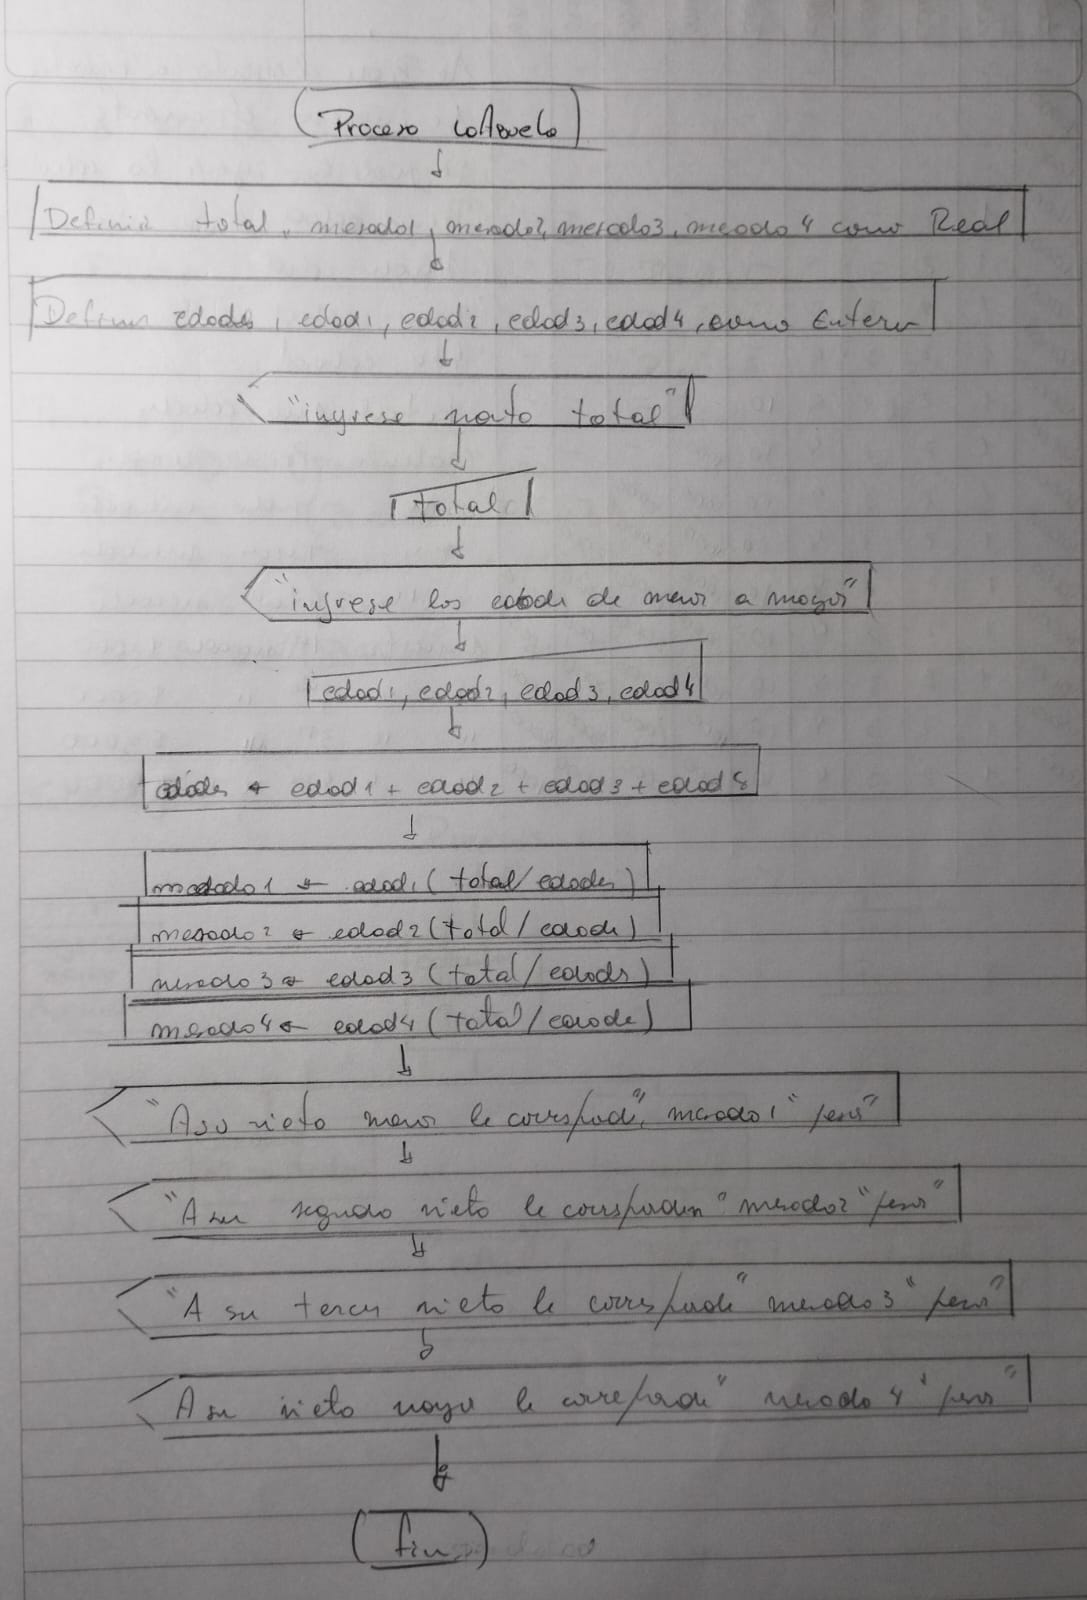 Proceso laAbuela
Definir total, mesada1, mesada2, mesada3, mesada4 como Real
Definir edades, edad1, edad2, edad3, edad4, como Entero
"ingrese monto total"
total
"ingrese las edades de menor a mayor"
edad1, edad2, edad3, edad4
edades ← edad1 + edad2 + edad3 + edad4
mesada1 ← edad1 (total/edades)
mesada2 ← edad2 (total/edades)
mesada3 ← edad3 (total/edades)
mesada4 ← edad4 (total/edades)
"A su nieto menor le corresponde", mesada1 "pesos"
"A su segundo nieto le corresponden" mesada2 "pesos"
"A su tercer nieto le corresponde" mesada3 "pesos"
A su nieto mayor le corresponde" mesada4 "pesos"
fin